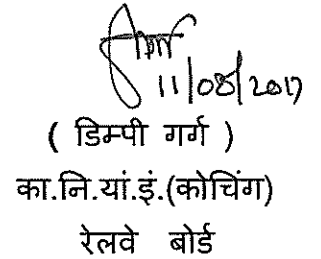 11/08/2017
( डिम्पी गर्ग )
का.नि.यां.इं.(कोचिंग)
रेलवे बोर्ड